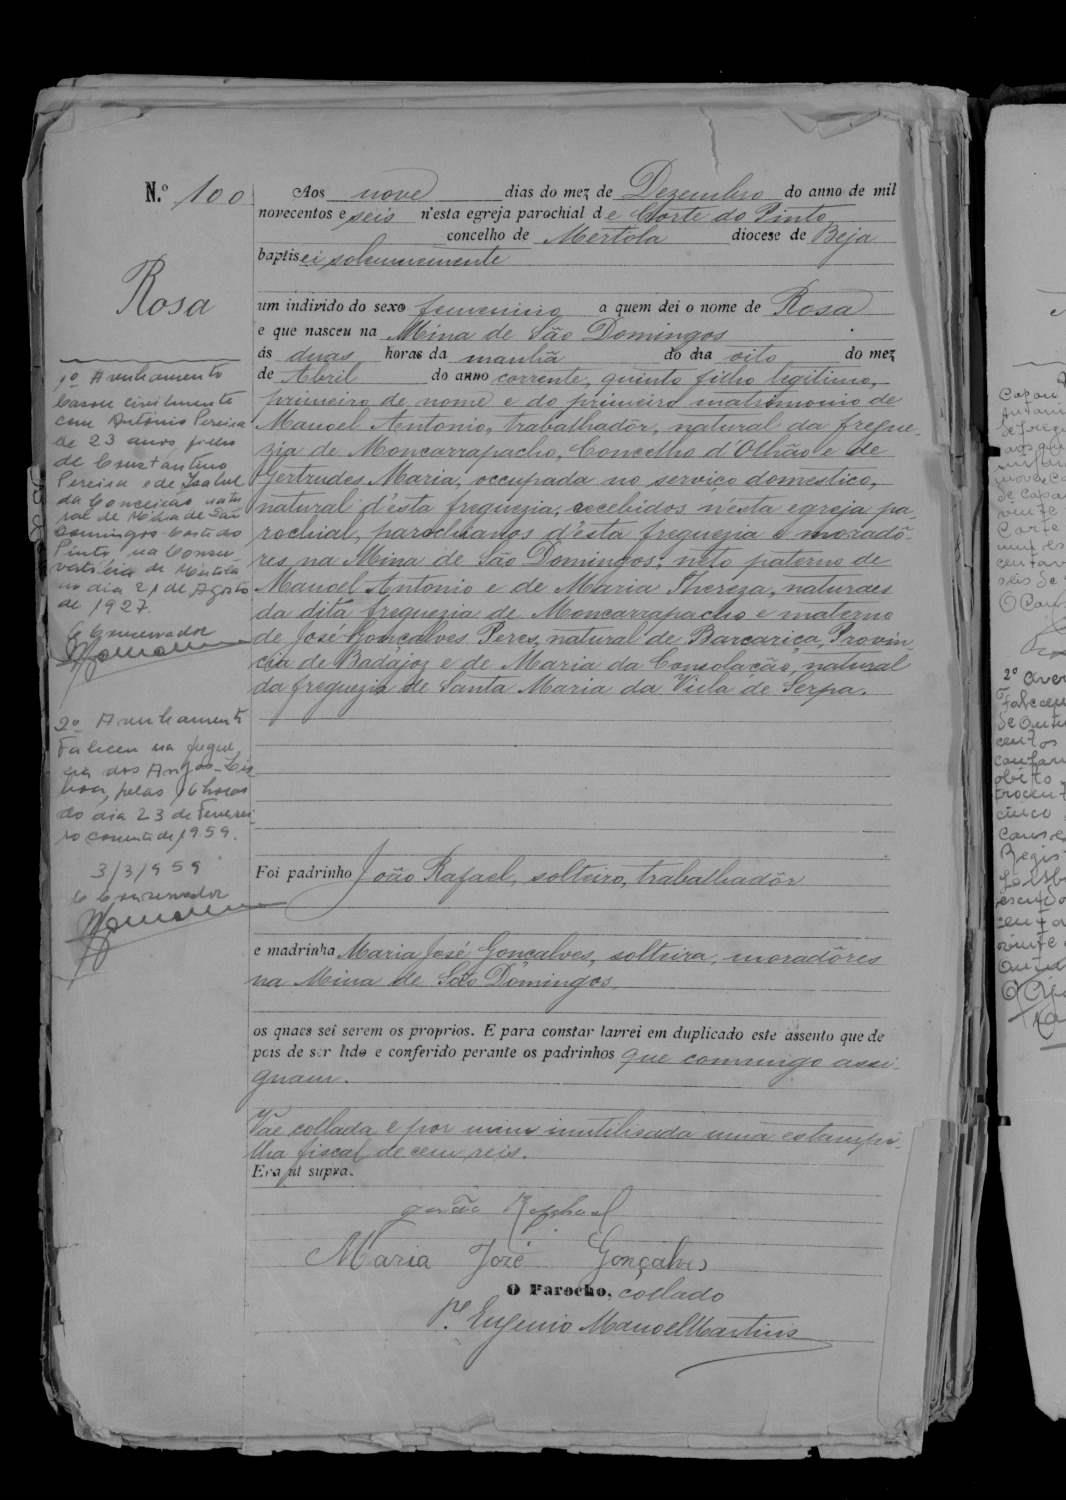 N.º 100
Rosa
Aos nove dias do mez de Dezembro do anno de mil
novecentos e seis n'esta egreja parochial de Corte do Pinto
concelho de Mertola diocese de Beja
baptisei solemnemente
um individo do sexo femenino a quem dei o nome de Rosa
e que nasceu na Mina de São Domingos
ás duas horas da manhã do dia oito do mez
de Abril do anno corrente, quinto filho legitimo,
primeiro de nome e do primeiro matrimonio de
Manoel Antonio, trabalhadôr, natural da fregue-
zia de Moncarrapacho, Concelho d'Olhão e de
Gertrudes Maria, occupada no serviço domestico,
natural d'ésta freguezia, recebidos n'ésta egreja pa-
rochial, parochianos d'ésta freguezia e moradô-
res na Mina de São Domingos; neto paterno de
Manoel Antonio e de Maria Thereza, naturaes
da dita freguezia de Moncarrapacho e materno
de José Gonçalves Peres, natural de Barcarica, Provin-
cia de Badajoz e de Maria da Consolacão, natural
da freguezia de Santa Maria da Villa de Serpa.
Foi padrinho João Rafael, solteiro, trabalhadôr
e madrinha Maria José Gonçalves, solteira, moradôres
na Mina de São Domingos
os quaes sei serem os proprios. E para constar lavrei em duplicado este assento que de
pois de ser lido e conferido perante os padrinhos que commigo assi-
gnam.
Vae collada e por mim inutilisada uma estampi-
lha fiscal de cem reis.
Era ut supra.
João Raphael
Maria José Gonçalves
O Parocho, collado
P.e Eugenio Manoel Martins
1º Averbamento
Casou civilmente
com António Pereira
de 23 anos filho
de Constantino
Pereira e de Isabel
da Conceição natu
ral de Mina de São
Domingos Corte do
Pinto na Conser
vatória de Mértola
no dia 21 de Agosto
de 1927.
O Conservador
2º Averbamento
Faleceu na fregue
zia dos Anjos-Lis
boa, pelas 16 horas
do dia 23 de Feverei-
ro corrente de 1959.
3/3/959
O Conservador
2º Aver
Faleceu